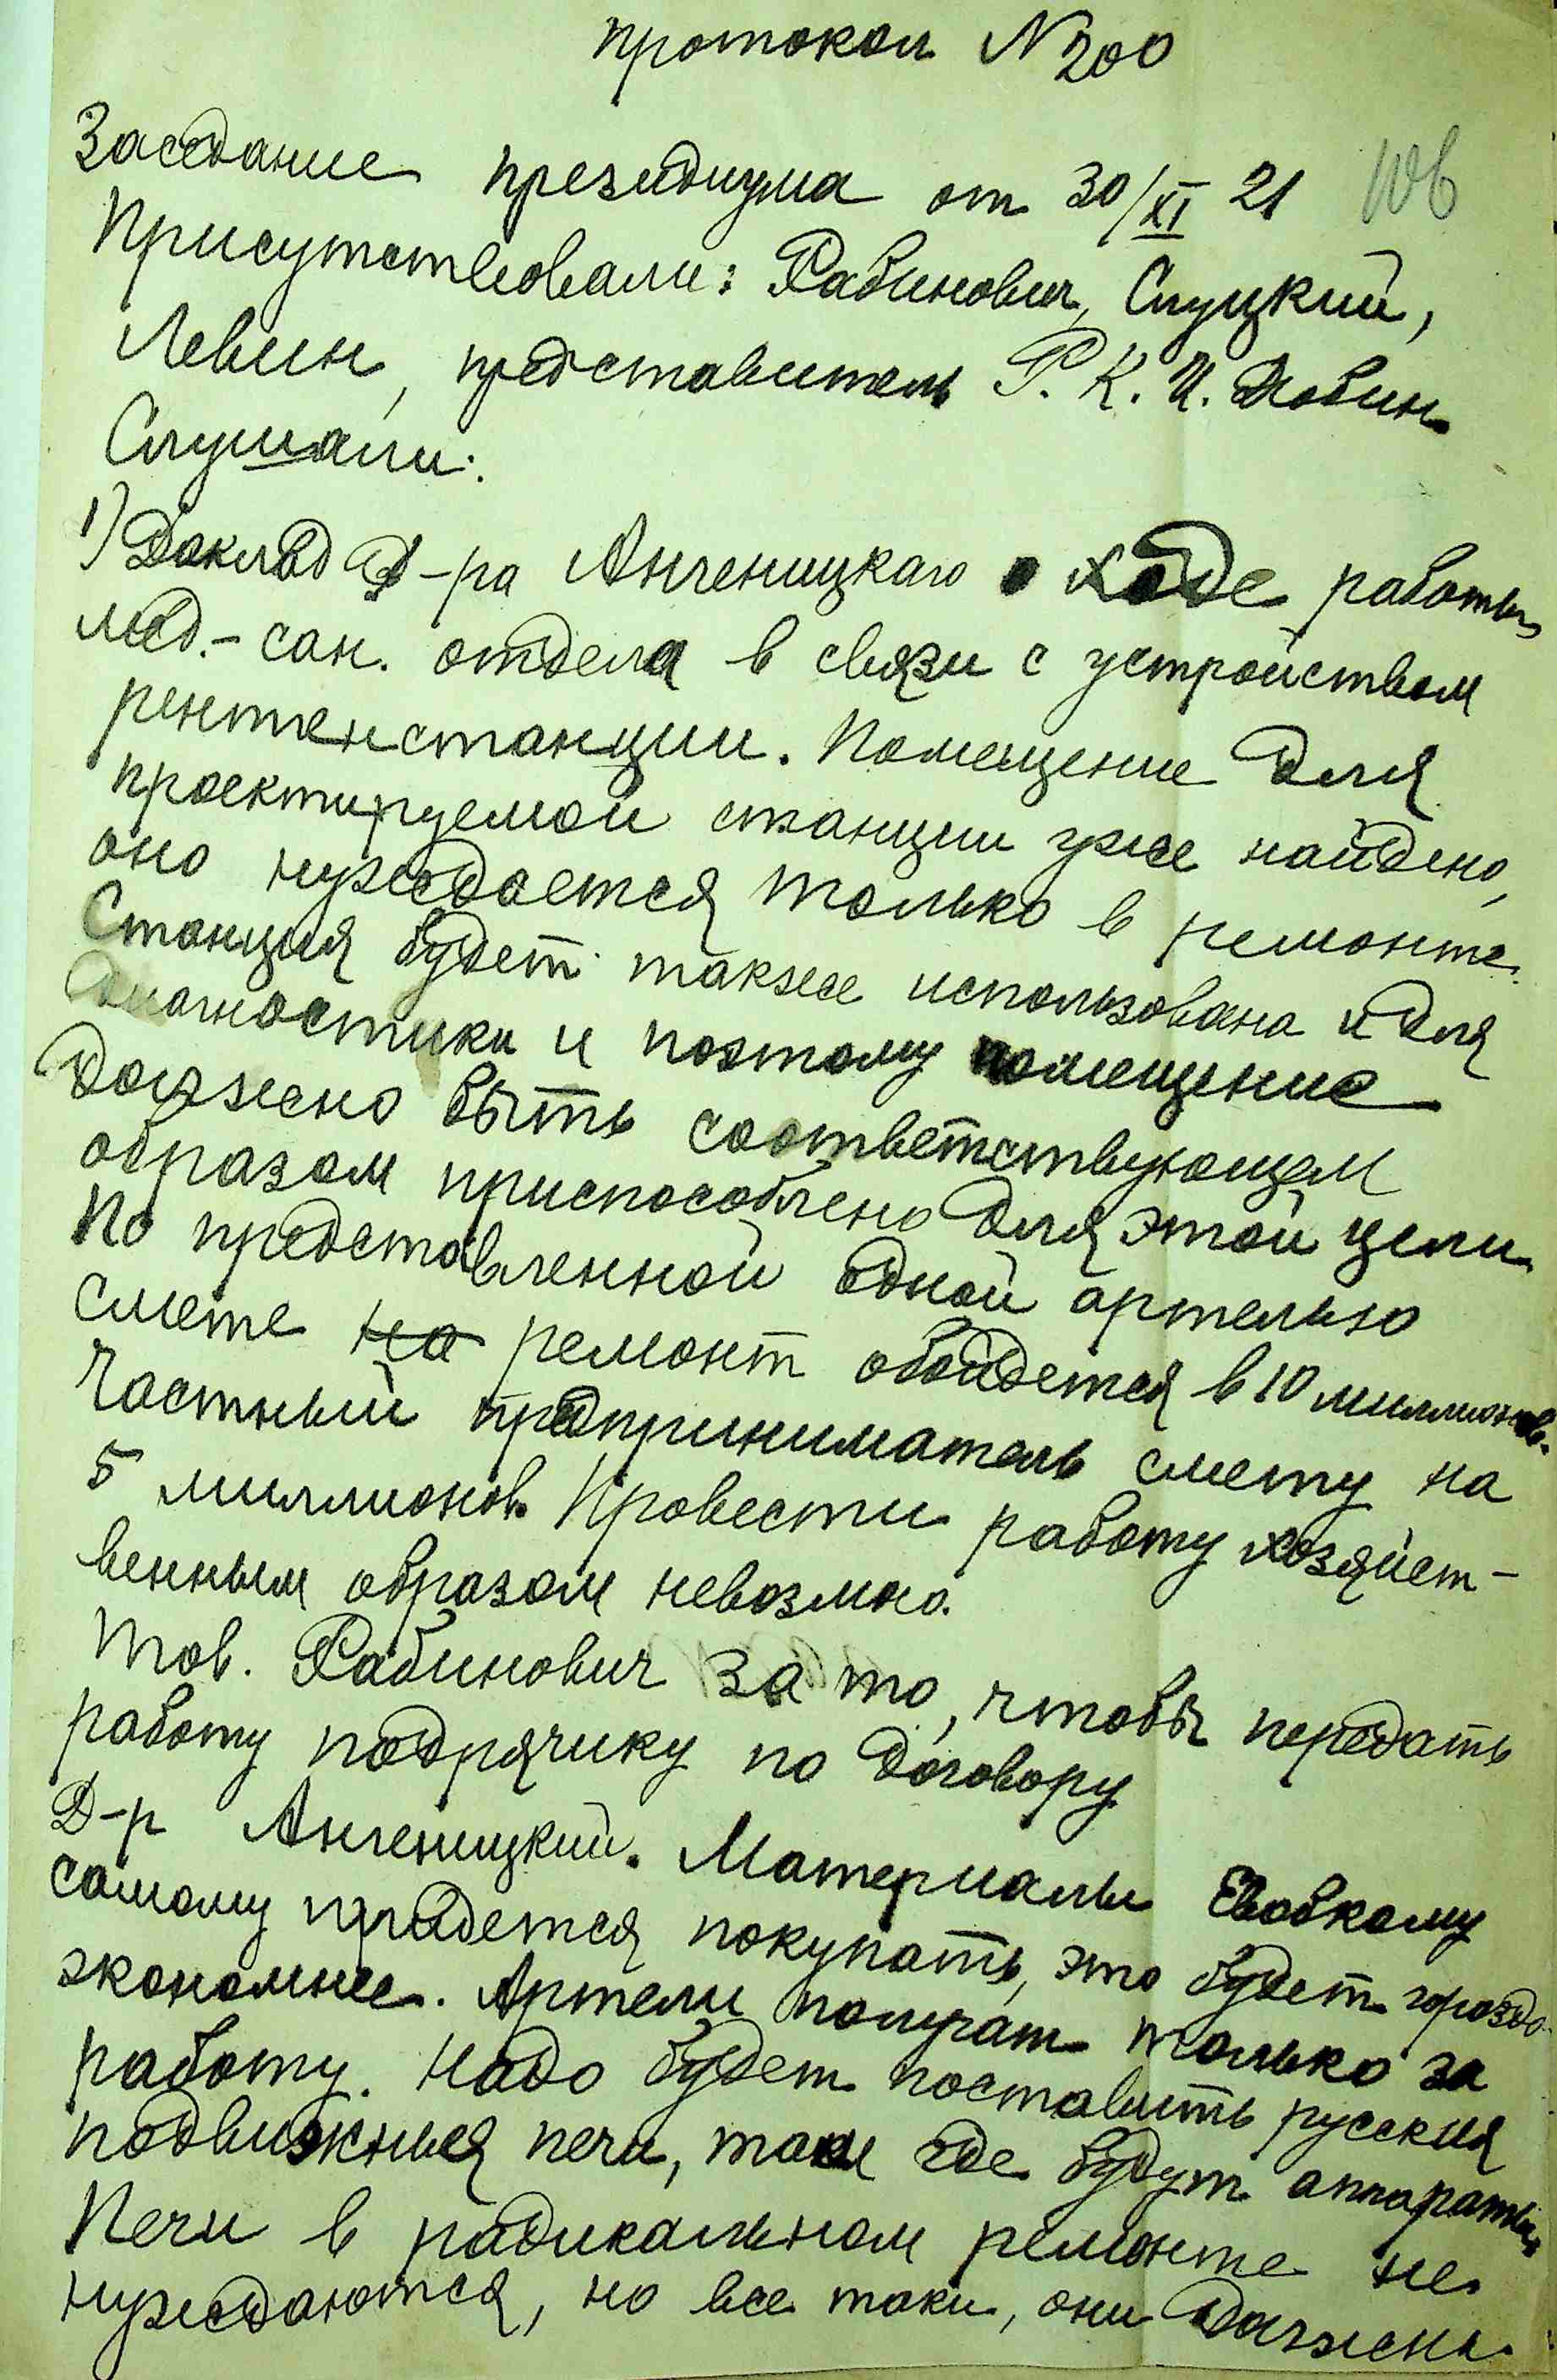 протокол N 200
Заседание президиума от 30/XI 21
Присутствовали: Рабинович, Слуцкий,
Левин, представитель Р. К. И. Любин.
Слушали:
1) Доклад Д-ра Анченицкаго о ходе работы
мед.-сан. отдела в связи с устройством
рентгенстанции. Помещение для
проектируемой станции уже найдено,
оно нуждается только в ремонте.
Станция будет также использована и для
диагностики и поэтому помещение
должно быть соответствующем
образом приспособлено для этой цели.
По представленной одной артелью
смете на ремонт обойдется в 10 миллионов.
Частный предприниматель смету на
5 миллионов. Провести работу хозяйст-
венным образом невозмжо.
Тов. Рабинович за то, чтобы передать
работу подрячику по договору
Д-р Анченицкий. Материалы Евобкому
самому придется покупать, это будет гораздо
экономнее. Артели получат только за
работу. Надо будет поставить русския
подвижныя печи, там где будут аппараты.
Печи в радикальном ремонте не
нуждаются, но все таки, они должны